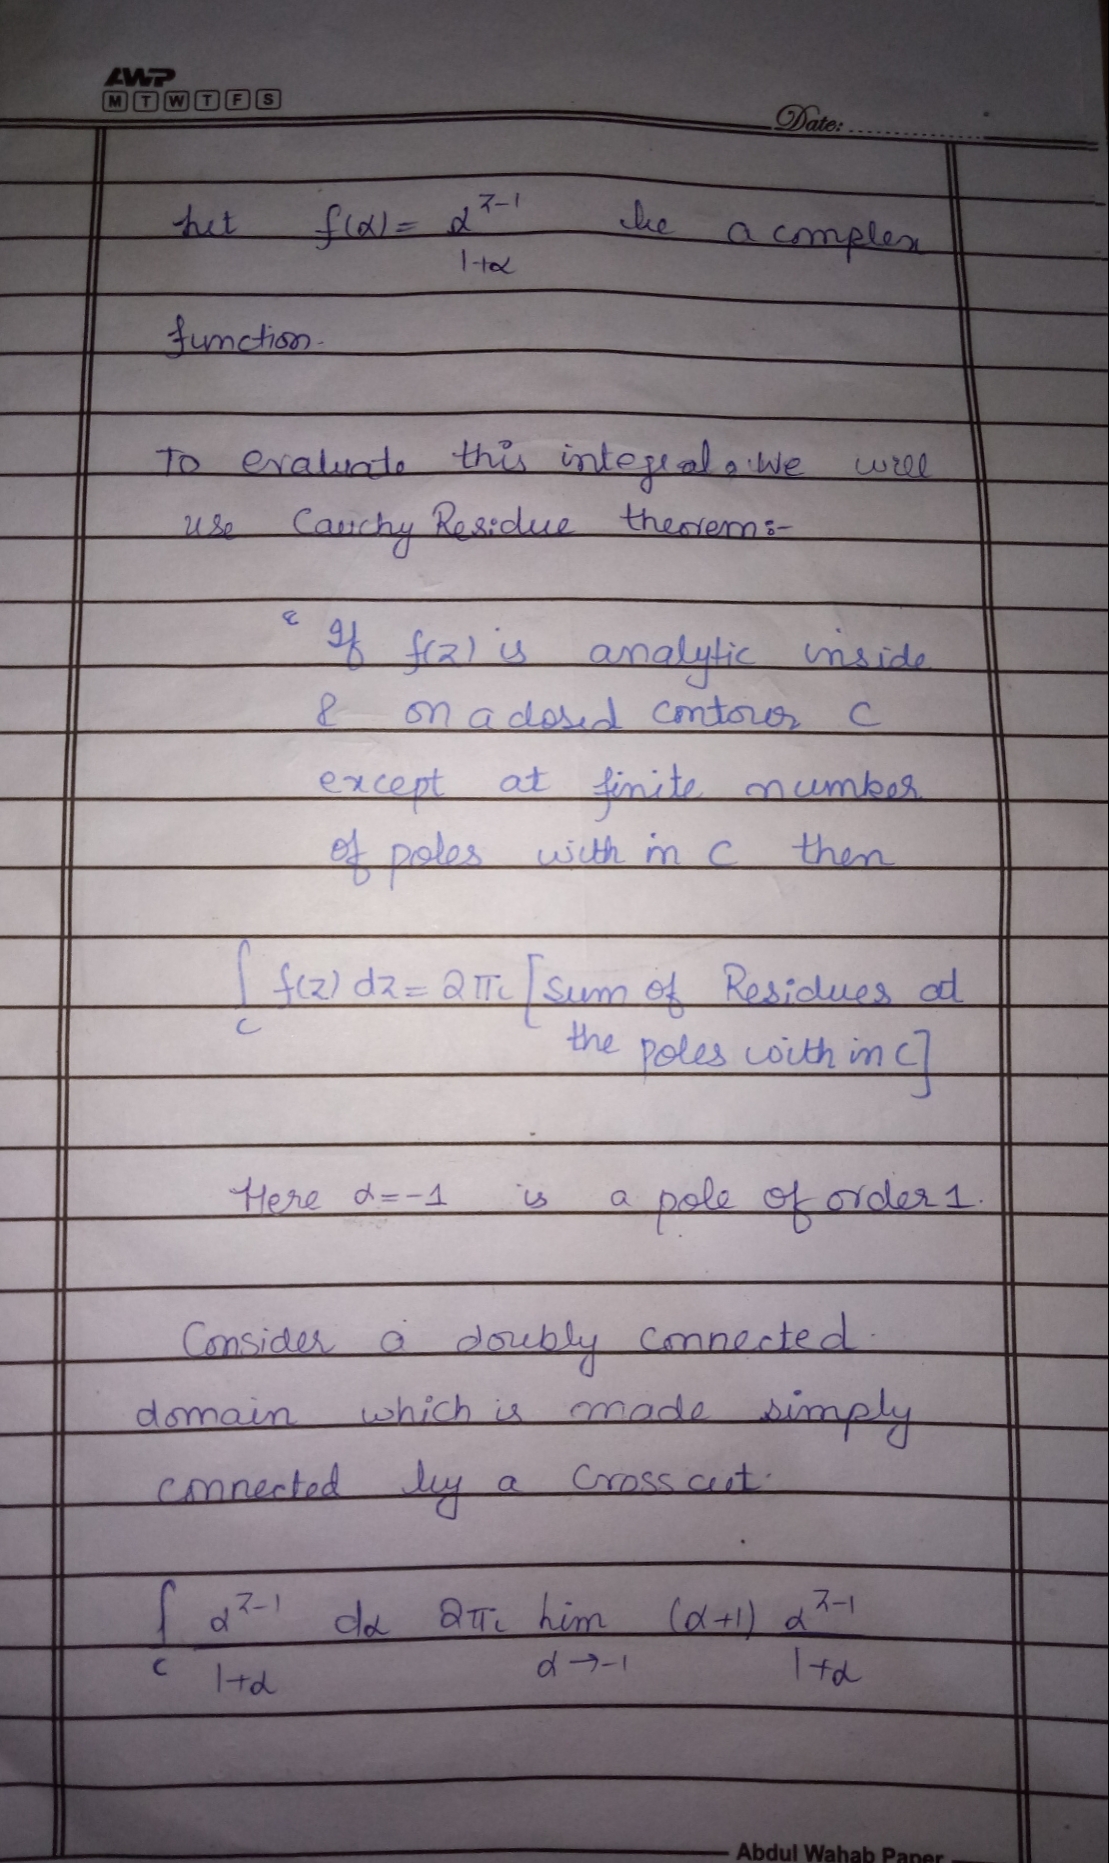 AWP
M T W T F S
Date:
Let f(α) = α^{z-1} be a complex
1+α
function.
To evaluate this integral, We will
use Cauchy Residue theorem:-
“ If f(z) is analytic inside
& on a closed contour C
except at finite number
of poles with in C then
∫ f(z) dz = 2πi [Sum of Residues at
C the poles with in C]
Here α=-1 is a pole of order 1.
Consider a doubly connected
domain which is made simply
connected by a Cross cut.
∫ α^{z-1} dα 2πi Lim (α+1) α^{z-1}
C 1+α α→-1 1+α
Abdul Wahab Paper